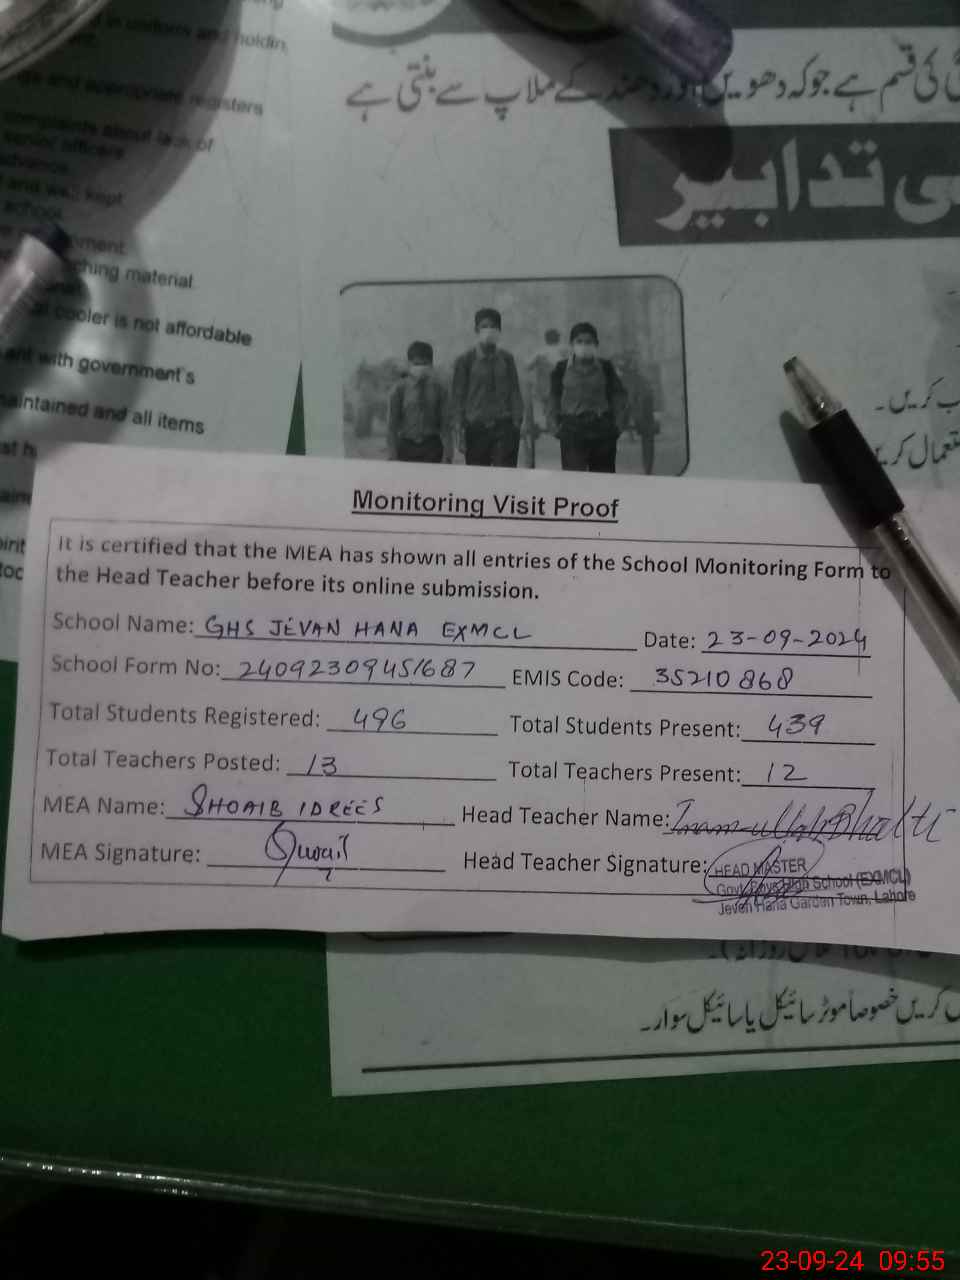 uniforms and holdin
and appropriate registers
complaints about lack of
senior officers
advance.
and well kept
school.
material
cooler is not affordable
with government's
maintained and all items
کی قسم ہے جوکہ دھویں اور دھند کے ملاپ سے بنتی ہے
تدابیر
کریں۔
Monitoring Visit Proof
It is certified that the MEA has shown all entries of the School Monitoring Form to
the Head Teacher before its online submission.
School Name: GHS JEVAN HANA EXMCL Date: 23-09-2024
School Form No: 24092309451687 EMIS Code: 35210868
Total Students Registered: 496 Total Students Present: 439
Total Teachers Posted: 13 Total Teachers Present: 12
MEA Name: SHOAIB IDREES Head Teacher Name: Inam-ullah Bhatti
MEA Signature: Head Teacher Signature:
HEAD MASTER
Govt. Boys High School (EXMCL)
Jeven Hana Garden Town, Lahore
کریں خصوصاً موٹر سائیکل یا سائیکل سوار۔
23-09-24 09:55